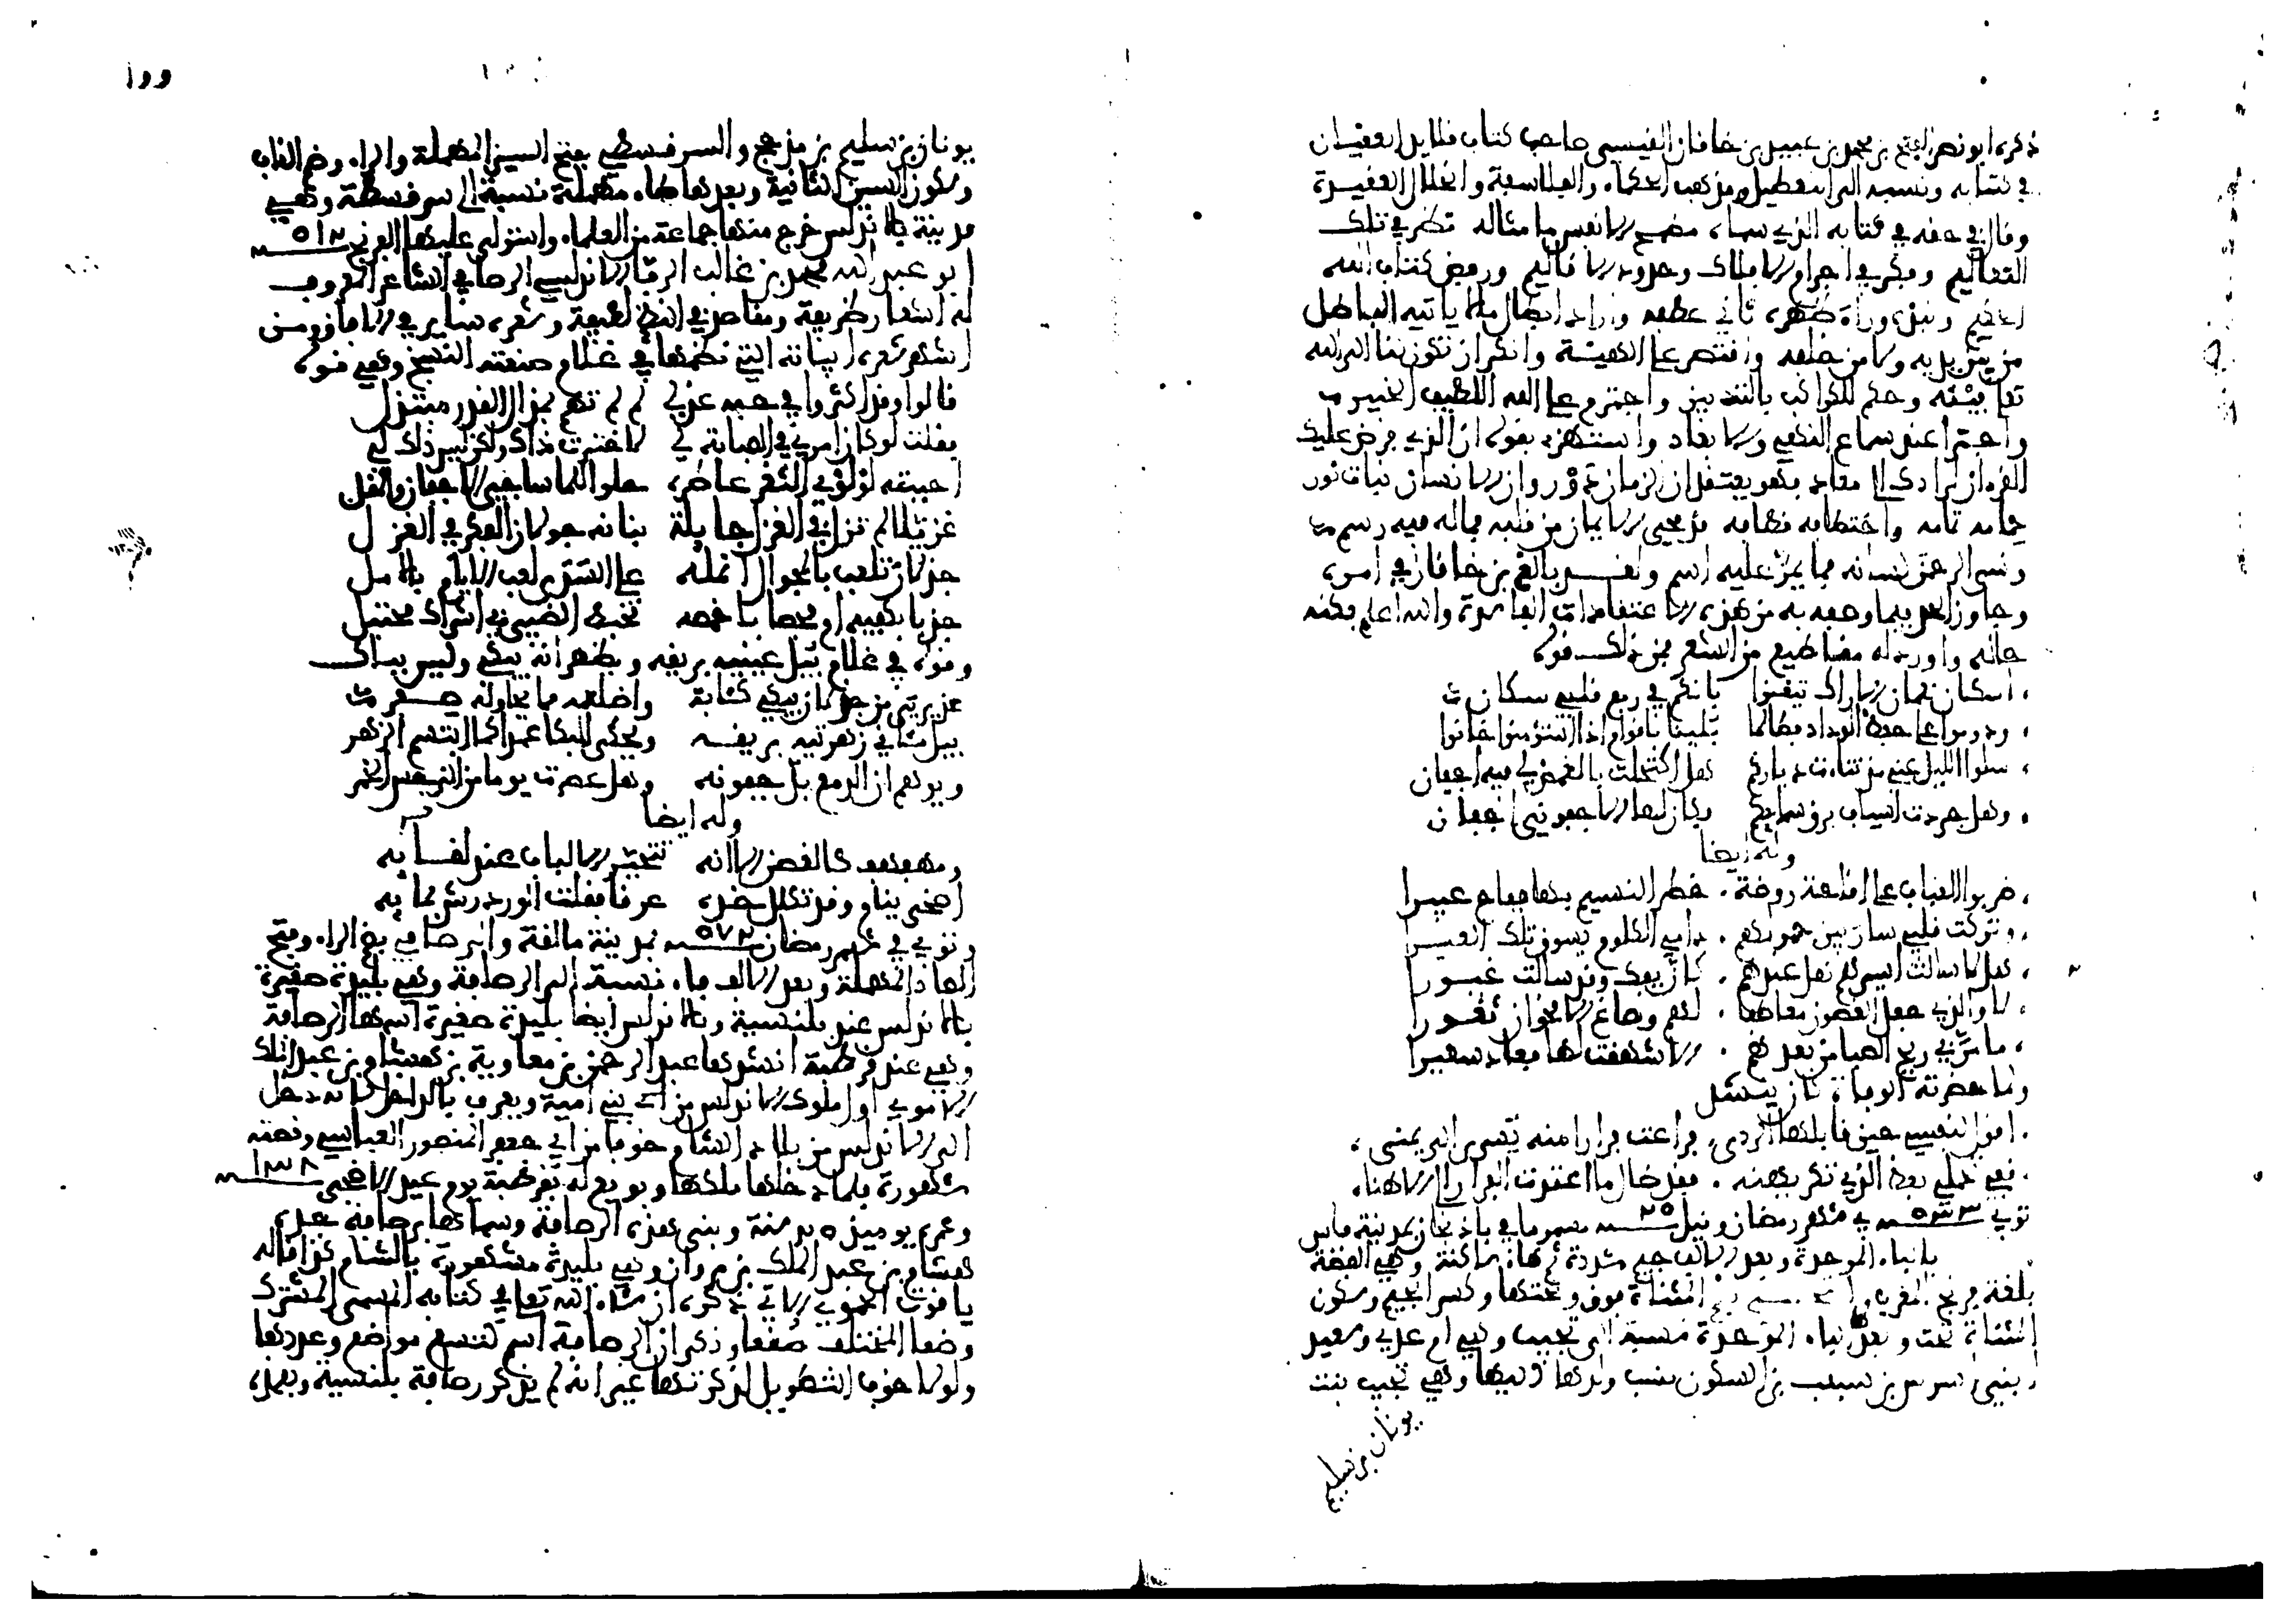 ذكره ابو نصر الفتح بن محمد بن عبيد بن خاقان القيسي صاحب كتاب قلايد العقيان
في كتابه ونسبه الى التعطيل ومذهب الحكماء والفلاسفة وانحلال العقيدة
وقال في حقه في كتابه الذي سماه مطمح الانفس ما مثاله نظر في تلك
التعاليم وفكر في اجرام الافلاك وحدود الاقاليم ورفض كتاب الله
الحكيم ونبذه وراء ظهره ثاني عطفه واراد ابطال ما لا ياتيه الباطل
من بين يديه ولا من خلفه واقتصر على الهيئة وانكر ان تكون لنا الى الله
تعلى فيئة وحكم للكواكب بالتدبير واجترم على الله اللطيف الخبير
واجترا عند سماع النهي والايعاد واستهزء بقوله ان الذي فرض عليك
القرءان لرادك الى معاد فهو يعتقد ان الزمان دور وان الانسان نبات نور
حمامه تمامه واختطافه قطافه قد محي الايمان من قلبه فما له فيه رسم
ونسي الرحمن لسانه فما يمر عليه اسم ولقد بالغ بن خاقان في امره
وجاوز الحد فيما وصفه به من هذه الاعتقادات الفاسدة والله اعلم بكنه
حاله واورد له مقاطيع من الشعر فمن ذلك قوله
اسكان نعمان الاراك تيقنوا بانكم في ربع قلبي سكان
ودوموا على حفظ الوداد فطالما بلينا باقوام اذا استؤمنوا خانوا
سلوا الليل عني مذ تناءت دياركم هل اكتحلت بالغمض لي فيه اجفان
وهل جردت اسياف برق سمايكم فكان لها الا جفوني اجفان
وله ايضا
ضربوا القباب على اقاحة روضة خطر النسيم بها ففاح عبيرا
وتركت قلبي سار بين حمولهم دامي الكلوم يسوق تلك العيرا
هلا سالت اسيرهم هل عندهم عان يفك وقد سالت غيورا
لا والذي جعل الغصون معاطفا لهم وصاغ الاقحوان ثغورا
ما مر بي ريح الصبا من بعدهم الا شهقت لها فعاد سعيرا
ولما حضرته الوفاة كان ينشد
اقول لنفسي حين قابلها الردى فراعت فرارا منه يسرى الى يمنى
قفي تحملي بعض الذي تكرهينه فقد طال ما اعتدت الفرار الى الاهنا
توفي ٥٣٣ في شهر رمضان وقيل ٢٥ مسموما في باذنجان بمدينة فاس
بالباء الموحدة وبعد الالف جيم مشددة ثم هاء ساكنة وهي الفضة
بلغة فرنج المغرب المثناة فوق وتحتها وكسر الجيم وسكون
المثناة تحت وبعدها باء الموحدة نسبة الى تجيب وهي ام عدي وسعيد
ابني اشرس بن شبيب بن السكون نسب ولدها اليها وهي تجيب بنت
يونان بن سليم
١٩٩
يونان بن سليم بن مذحج والسرقسطي بفتح السين المهملة والراء وضم القاف
وسكون السين الثانية وبعدها طاء مهملة نسبة الى سرقسطة وهي
مدينة بالاندلس خرج منها جماعة من العلماء واستولى عليها الفرنج ٥١٢
ابو عبد الله محمد بن غالب الرفاء الاندلسي الرصافي الشاعر المعروف
له اشعار ظريفة ومقاصد في النظم لطيفة وشعره ساير في الافاق ومن
اشهر شعره ابياته التي نظمها في غلام صنعته النسج وهي قوله
قالوا وقد اكثروا في حبه عذلي لم لم تهم بمذال القدر مبتذل
فقلت لو كان امري في الصبابة لي لاخترت ذاك ولكن ليس ذاك لي
احببته لؤلؤي الثغر عاطره حلو اللما ساجي الاجفان والمقل
غزيلا لم تزل في الغزل جايلة بنانه جولان الفكر في الغزل
جذلان تلعب بالمحواك انمله على السدى لعب الايام بالامل
جذبا بكفيه او فحصا باخمصه تخبط الظبي في اشراك محتبل
وقوله في غلام يبل عينيه بريقه ويظهر انه يبكي وليس بباك
عذيري من جذلان يبكي كئابة واضلعه مما يحاوله صفر
يبل مئاقي زهرتيه بريقه ويحكي البكا عمدا كما ابتسم الزهر
ويوهم ان الدمع بل جفونه وهل عصرت يوما من النرجس الخمر
وله ايضا
ومهفهف كالغصن الا انه تتحير الالباب عند لقائه
اضحى ينام وقد تكلل خده عرقا فقلت الورد رش بمائه
وتوفي في شهر رمضان ٥٧٢ بمدينة مالقة والرصافي بضم الراء وفتح
الصاد المهملة وبعد الالف فاء نسبة الى الرصافة وهي بليدة صغيرة
بالاندلس عند بلنسية وبالاندلس ايضا بليدة صغيرة اسمها الرصافة
وهي عند قرطبة انشاها عبد الرحمن بن معاوية بن هشام بن عبد الملك
الاموي اول ملوك الاندلس من بني امية ويعرف بالداخل لانه دخل
الى الاندلس من بلاد الشام خوفا من ابي جعفر المنصور العباسي وقصته
مشهورة فلما دخلها ملكها وبويع له بقرطبة يوم عيد الاضحى ١٣٨
وعمره يوميذ ٢٥ سنة وبنى هذه الرصافة وسماها برصافة جده
هشام بن عبد الملك بن مروان وهي بليدة مشهورة بالشام كذا قاله
ياقوت الحموي الاتي ذكره ان شاء الله تعلى في كتابه المسمى المشترك
وضعا المختلف صقعا وذكر ان الرصافة اسم لتسع مواضع وعددها
ولولا خوف التطويل لذكرتها غير انه لم يذكر رصافة بلنسية وبهذه